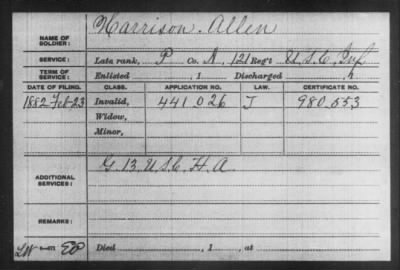 NAME OF SOLDIER: Harrison. Allen
SERVICE: Late rank, P Co. A, 121 Reg't U.S.C. Inf
TERM OF SERVICE: Enlisted , 1 Discharged , 1
DATE OF FILING. CLASS. APPLICATION NO. LAW. CERTIFICATE NO.
1882 Feb-23 Invalid, 441.026 J 980.553
Widow,
Minor,
ADDITIONAL SERVICES: G. 13. U.S.C. H. A.
REMARKS:
Died , 1 , at